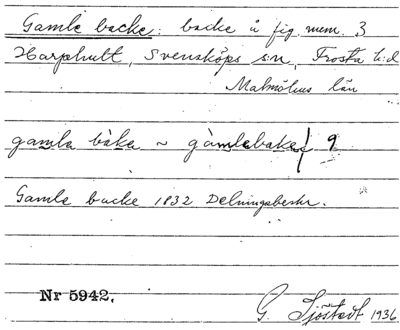 Gamle backe: backe å fig. num. 3
Harphult, Svensköps sn, Frosta hd
Malmöhus län
gamla bàke ~ gàmlebake/ 9
Gamle backe 1832 Delningsbeskr.
Nr 5942.
G. Sjöstedt 1936